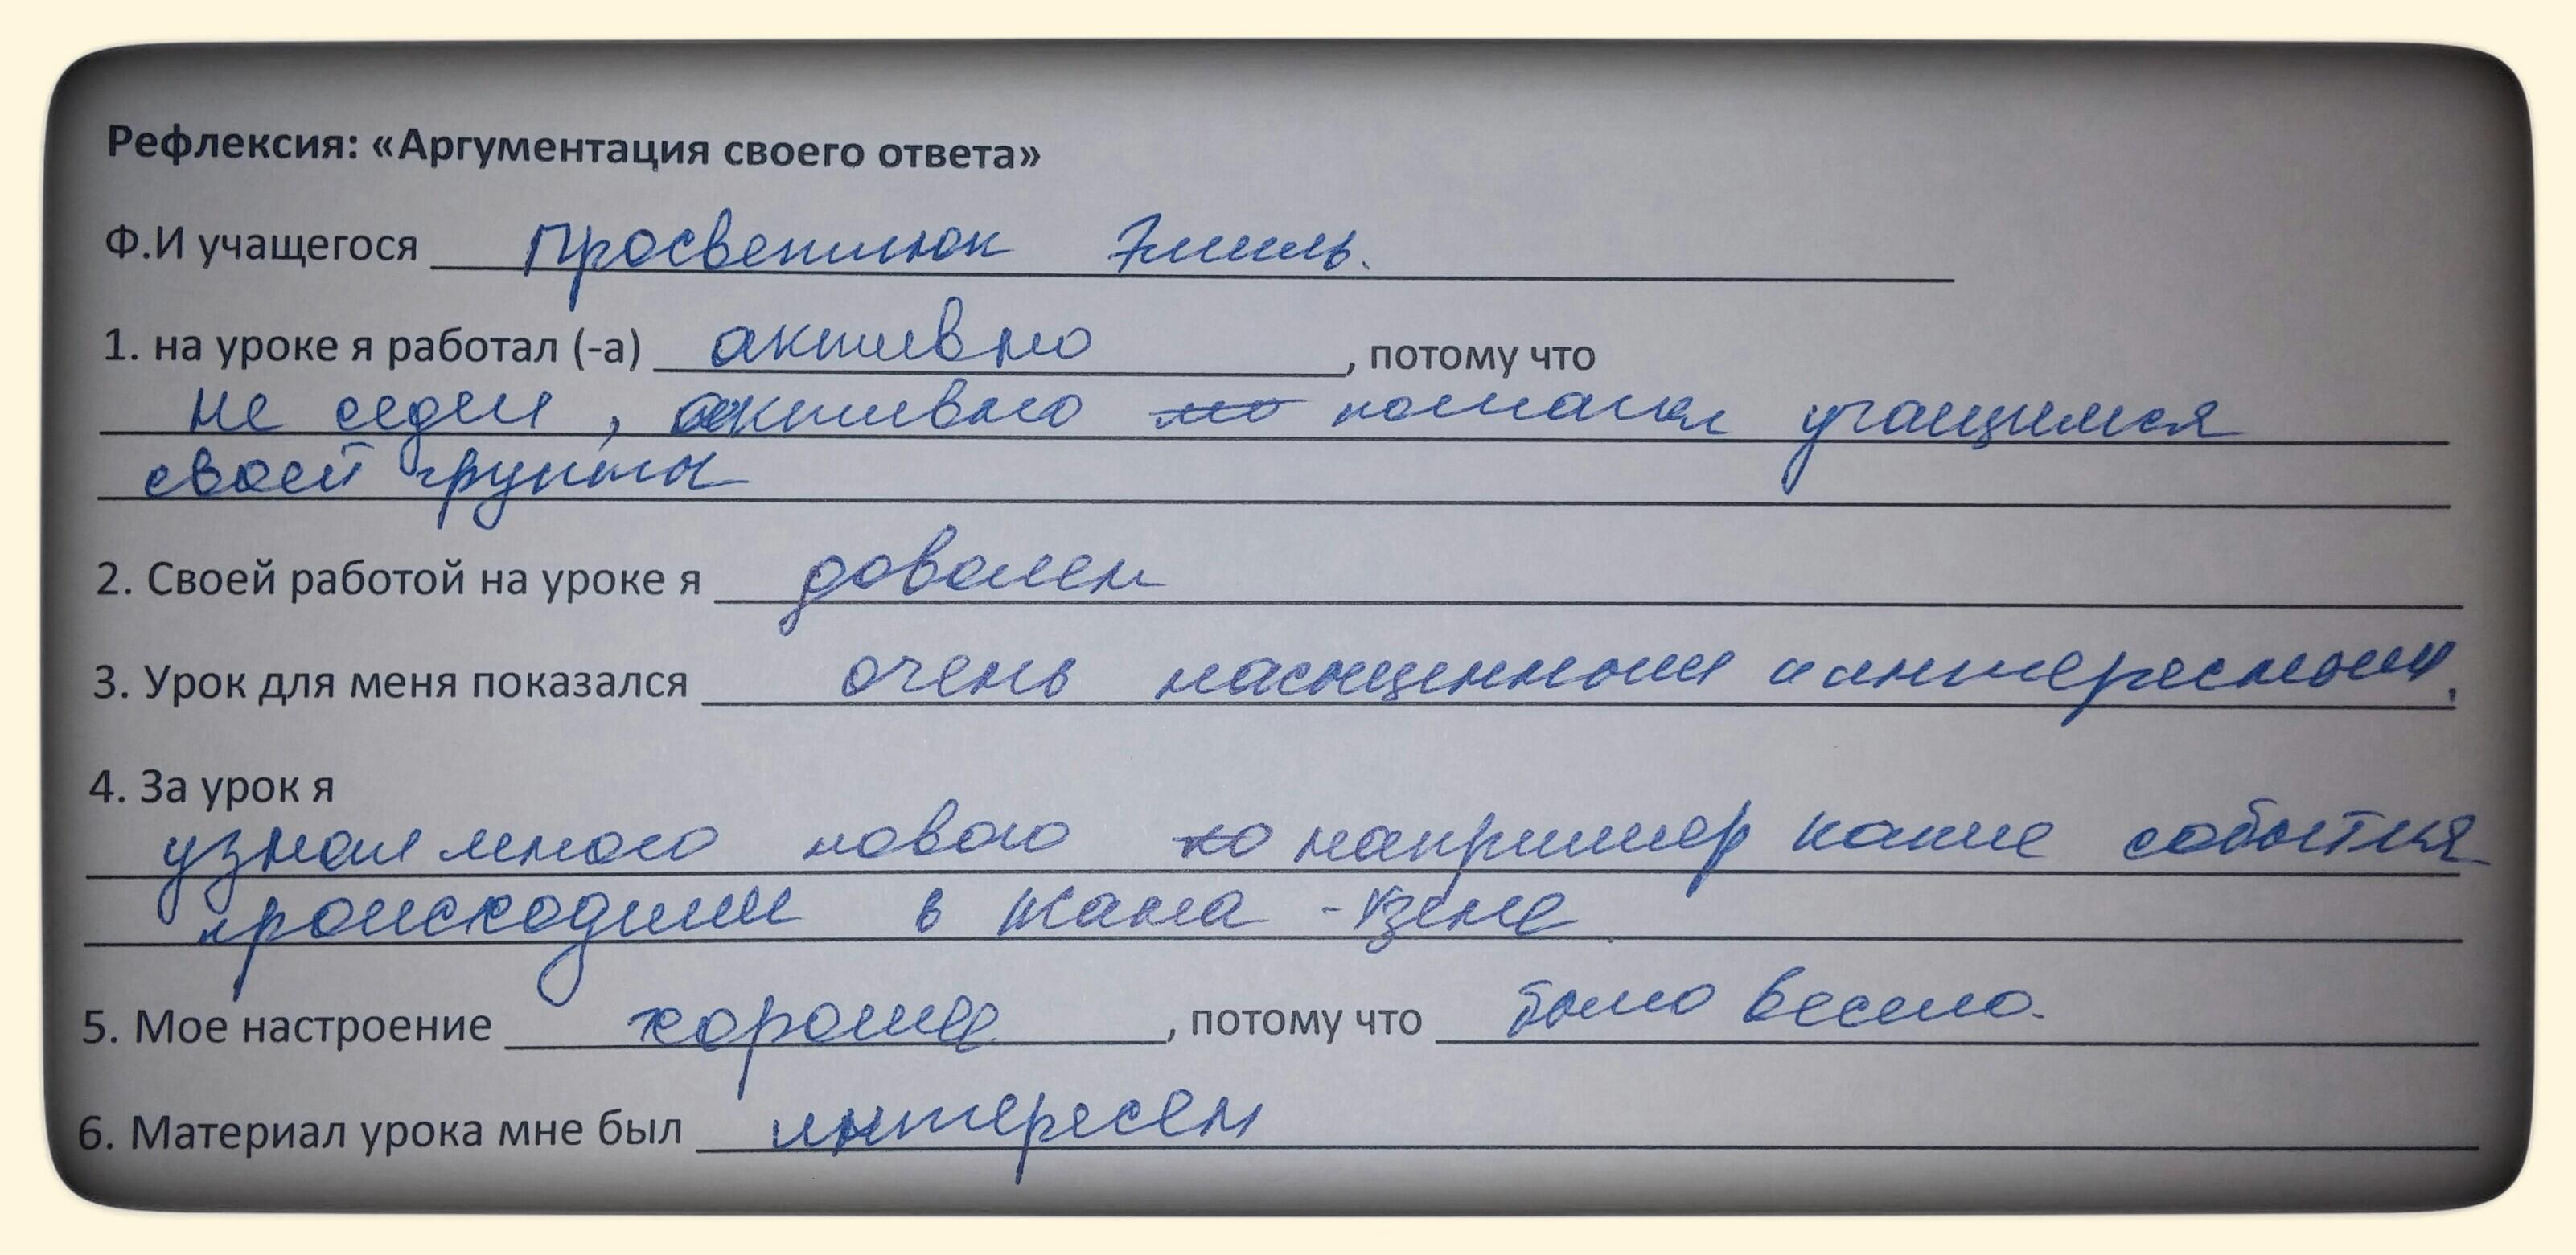 Рефлексия: «Аргументация своего ответа»
Ф.И учащегося Просветлюк Эмиль.
1. на уроке я работал (-а) активно, потому что
не седел, активно по помагал учащимся
своей группы
2. Своей работой на уроке я доволен
3. Урок для меня показался очень насыщенным и интересным.
4. За урок я
узнал много нового ко например какие события
происходили в Жана-Узене
5. Мое настроение хорошее, потому что было весело.
6. Материал урока мне был интересен